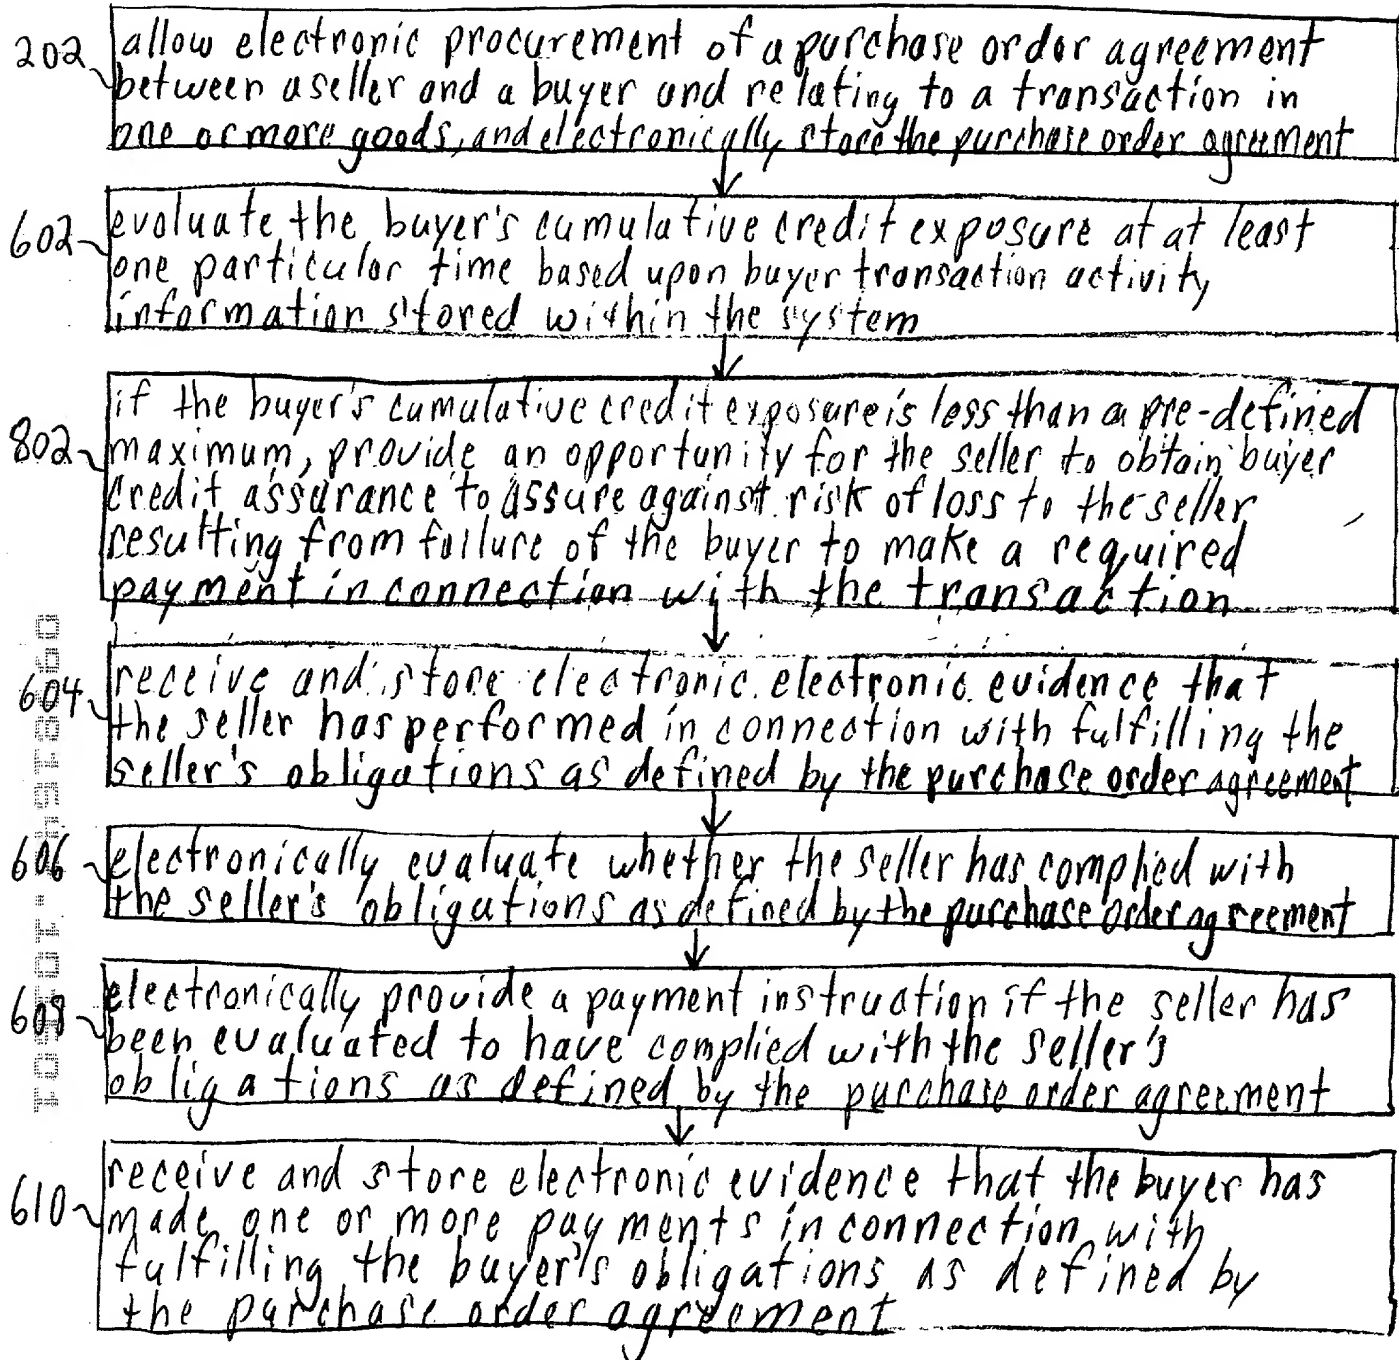 202 allow electronic procurement of a purchase order agreement
between a seller and a buyer and relating to a transaction in
one or more goods, and electronically store the purchase order agreement
602 evaluate the buyer's cumulative credit exposure at at least
one particular time based upon buyer transaction activity
information stored within the system
if the buyer's cumulative credit exposure is less than a pre-defined
802 maximum, provide an opportunity for the seller to obtain buyer
credit assurance to assure against risk of loss to the seller
resulting from failure of the buyer to make a required
payment in connection with the transaction
604 receive and store electronic electronic evidence that
the seller has performed in connection with fulfilling the
seller's obligations as defined by the purchase order agreement
606 electronically evaluate whether the seller has complied with
the seller's obligations as defined by the purchase order agreement
608 electronically provide a payment instruction if the seller has
been evaluated to have complied with the seller's
obligations as defined by the purchase order agreement
receive and store electronic evidence that the buyer has
610 made one or more payments in connection with
fulfilling the buyer's obligations as defined by
the purchase order agreement